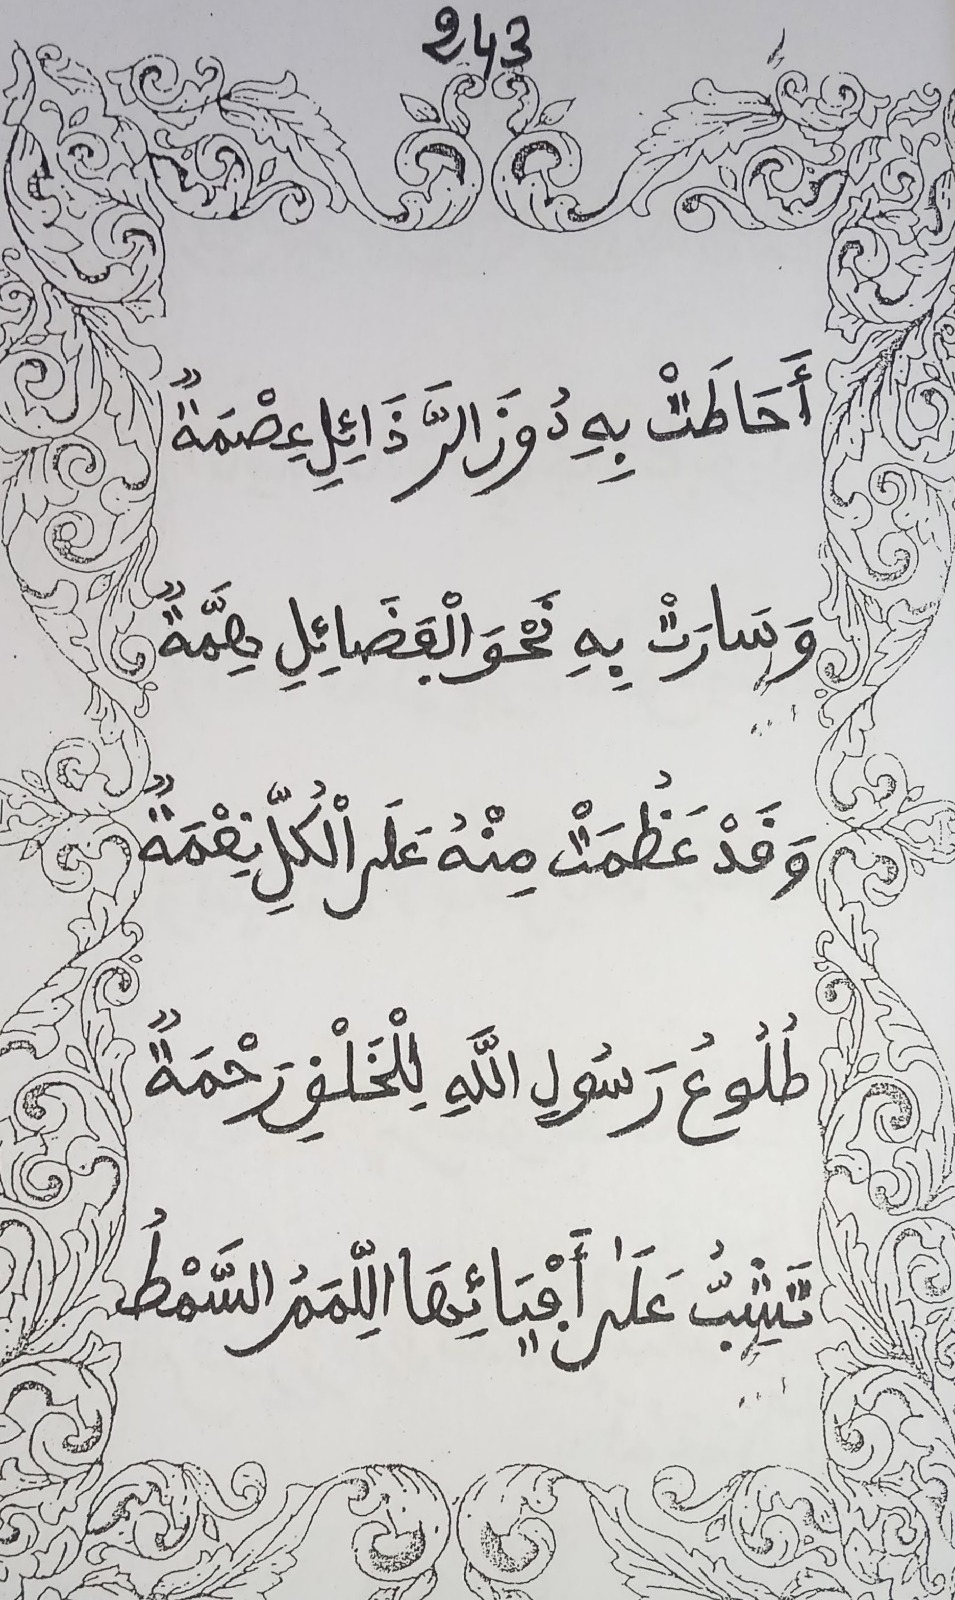 243
أَحَاطَتْ بِهِ دُونَ الرَّذَائِلِ عِصْمَةٌ
وَسَارَتْ بِهِ نَحْوَ الْفَضَائِلِ هِمَّةٌ
وَقَدْ عَظُمَتْ مِنْهُ عَلَى الْكُلِّ نِعْمَةٌ
طُلُوعُ رَسُولِ اللَّهِ لِلْخَلْقِ رَحْمَةٌ
تَشِبُّ عَلَىٰ أَفْيَائِهَا اللِّمَمُ السَّمْطُ